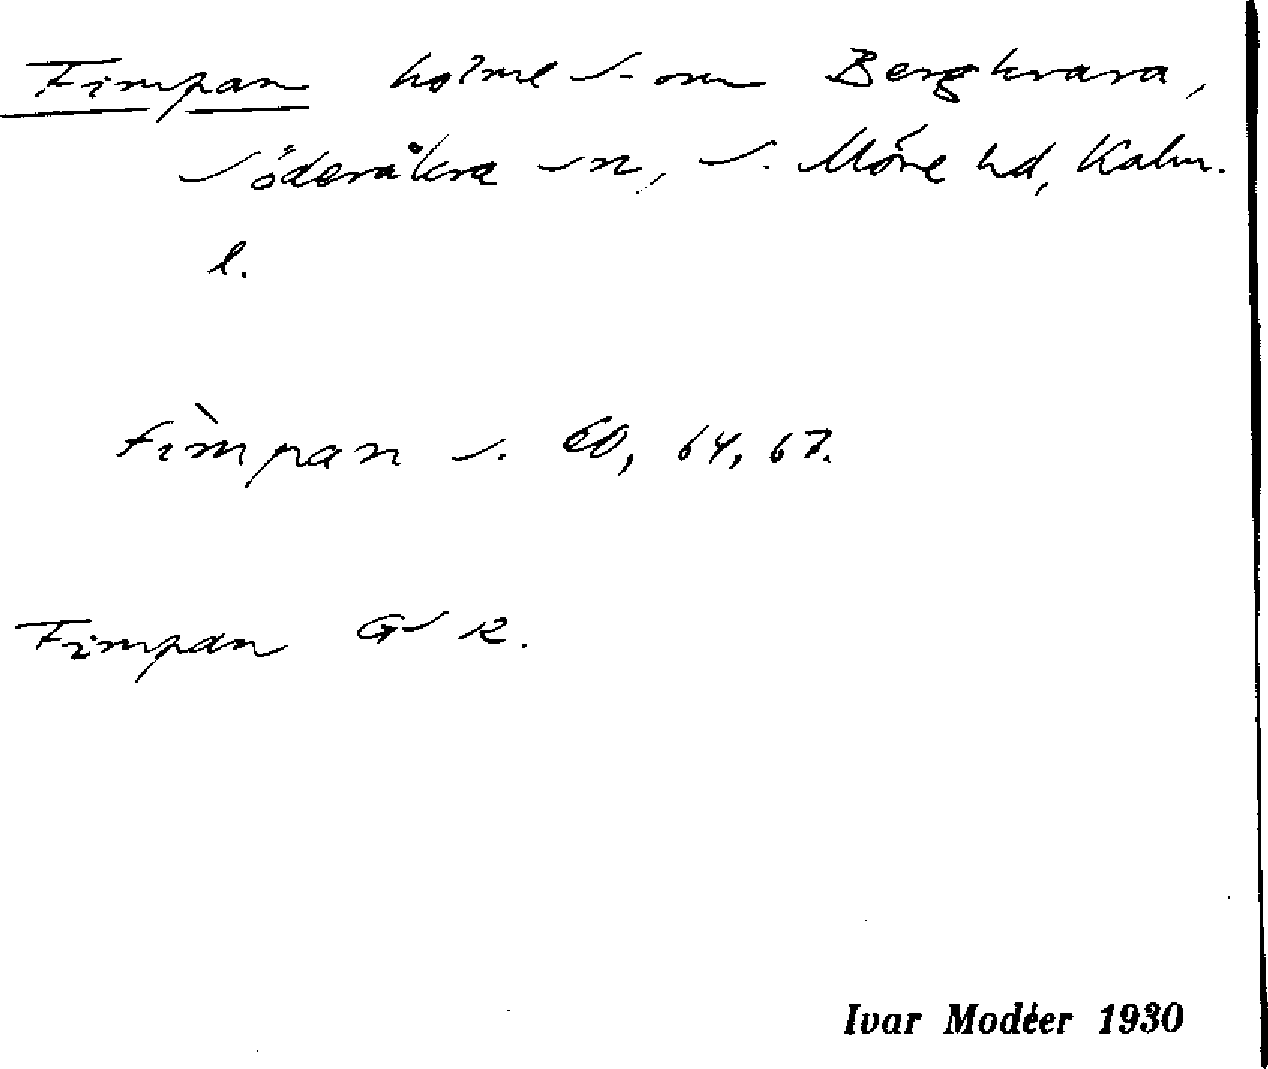 Fimpan holme s. om Bergkvara,
Söderåkra sn, S. Möre hd, Kalm.
l.
fìmpan s. 60, 64, 67.
Fimpan GSK.
Ivar Modéer 1930